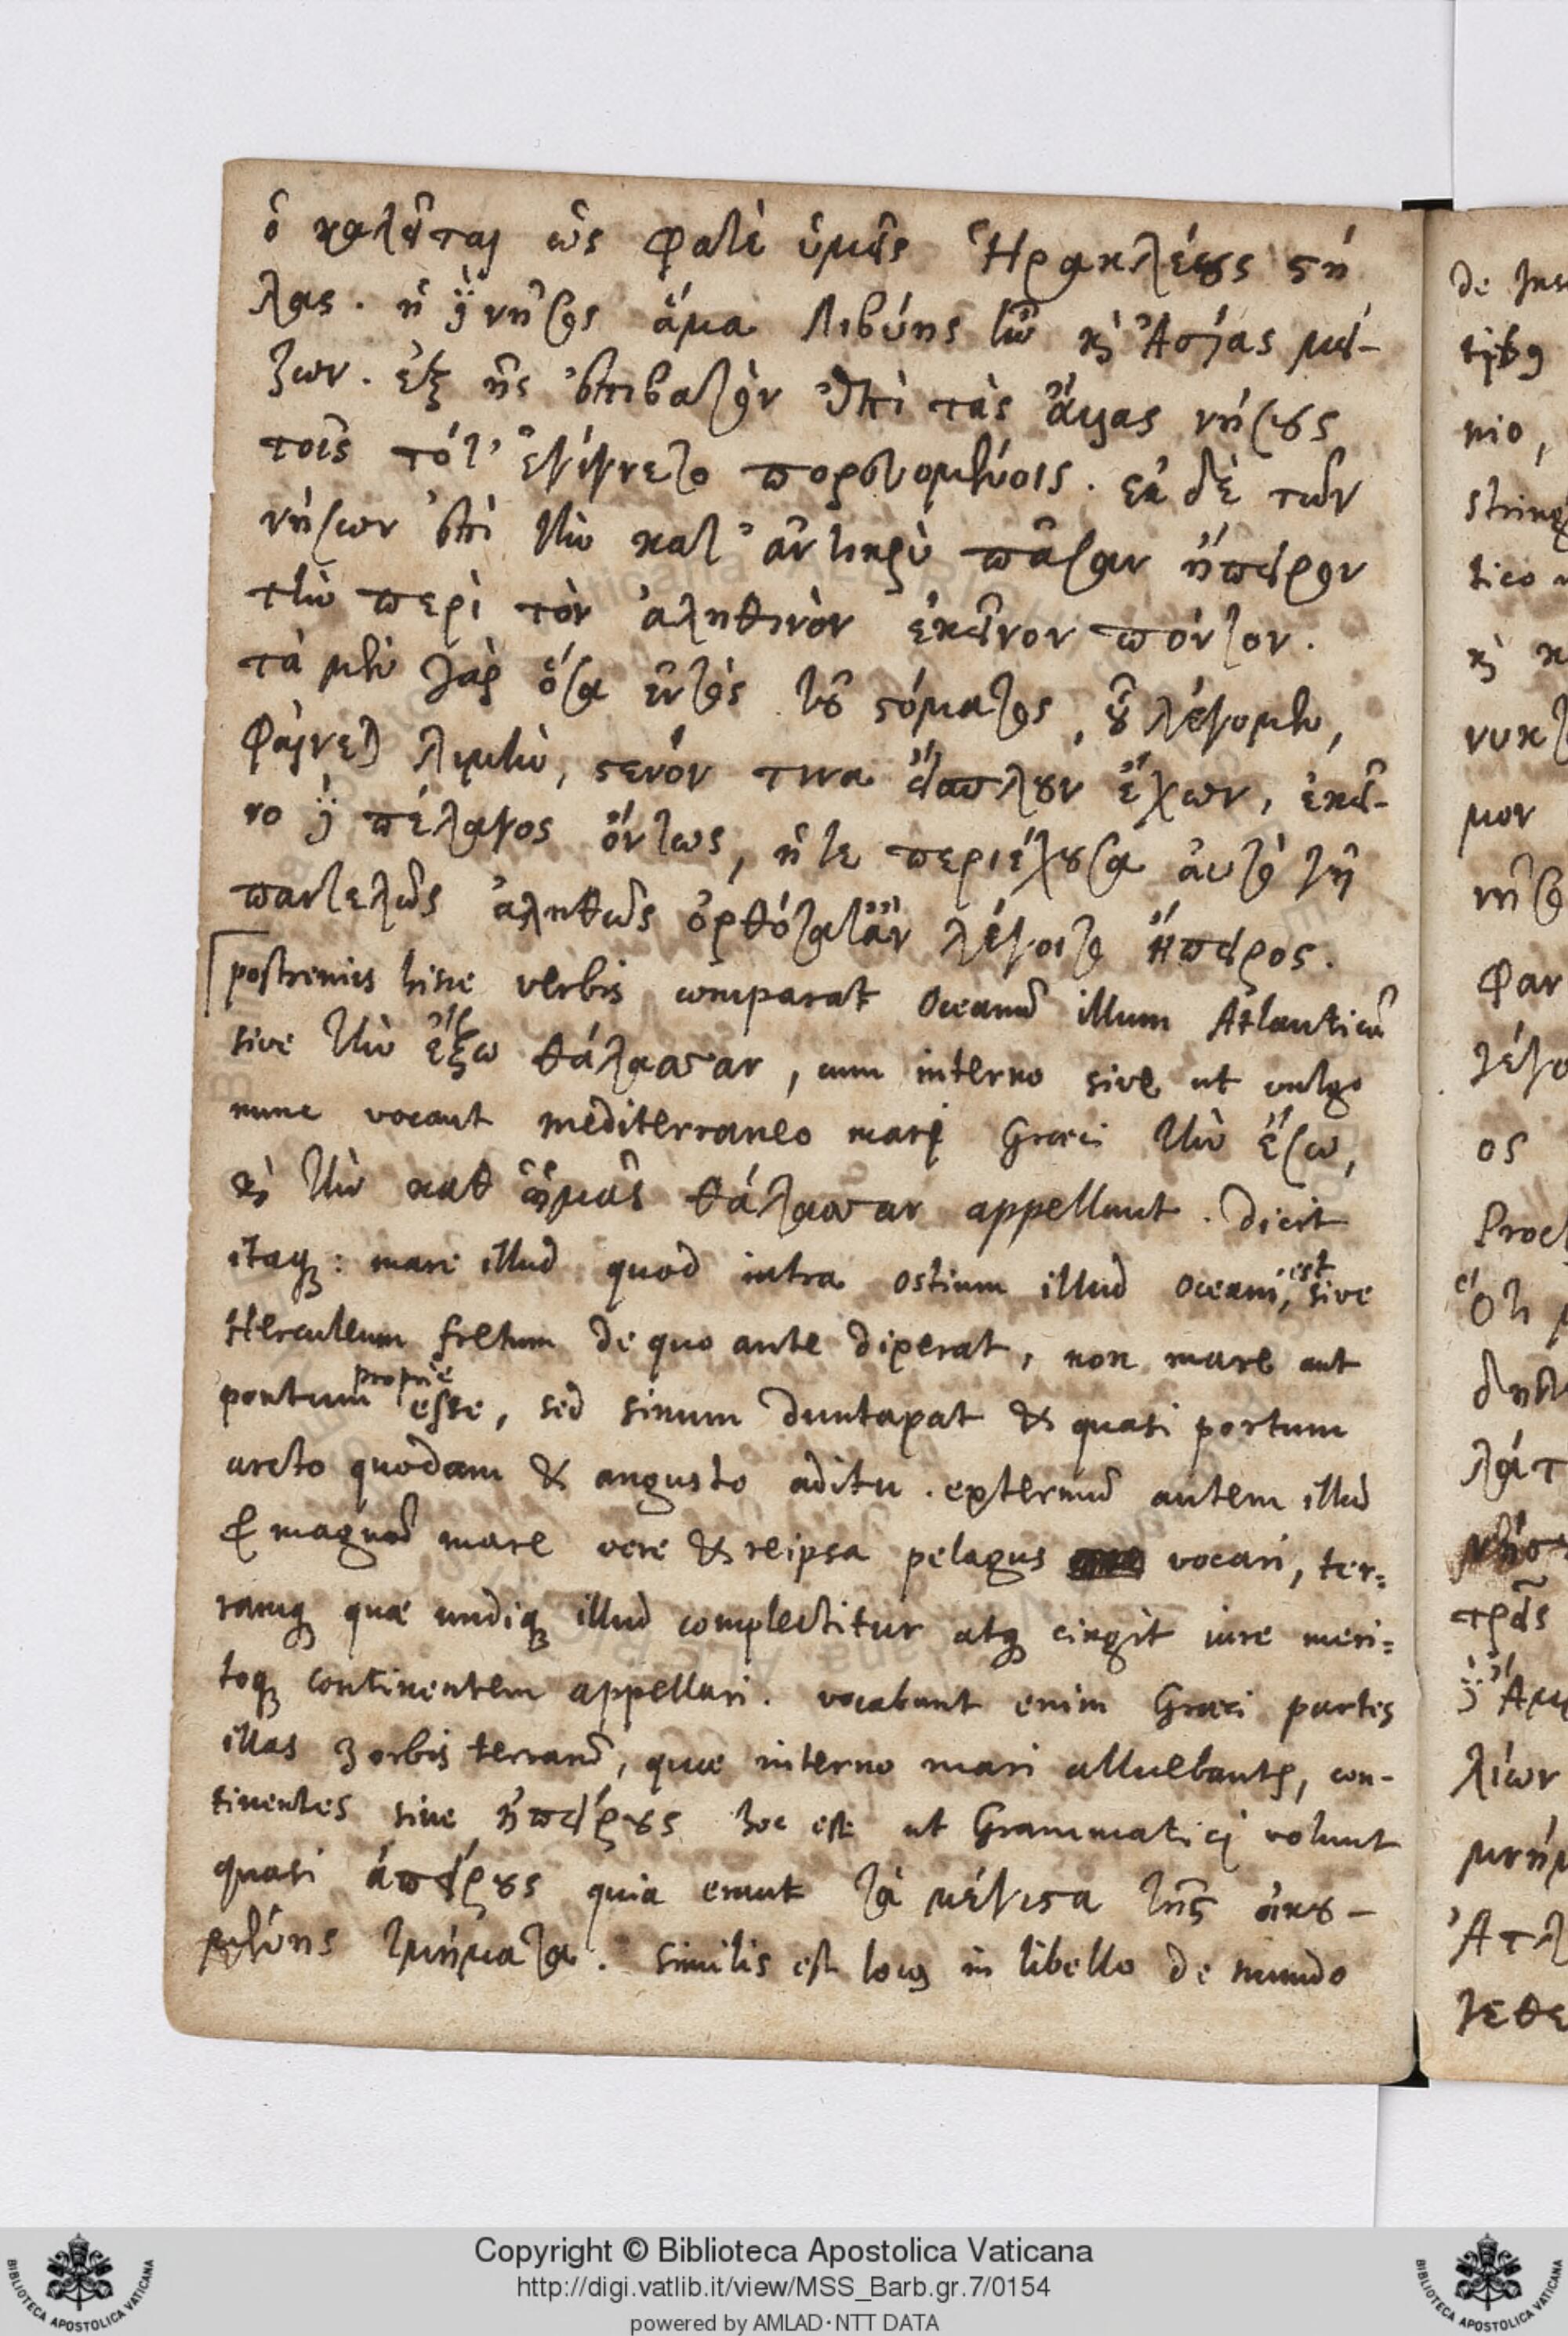 ὃ καλεῖται ὥς φατε ὑμεῖς Ἡρακλέους στή
λας. ἡ δὲ νῆσος ἅμα Λιβύης ἦν καὶ Ἀσίας μεί-
ζων. ἐξ ἧς ἐπιβατὸν ἐπὶ τὰς ἄλλας νήσους
τοῖς τότ' ἐγίγνετο πορευομένοις. ἐκ δὲ τῶν
νήσων ἐπὶ τὴν κατ' ἀντικρὺ πᾶσαν ἤπειρον
τὴν περὶ τὸν ἀληθινὸν ἐκεῖνον πόντον.
τὰ μὲν γὰρ ὅσα ἐντὸς τοῦ στόματος, οὗ λέγομεν,
φαίνεται λιμὴν, στενόν τινα εἴσπλουν ἔχων, ἐκεῖ-
νο δὲ πέλαγος ὄντως, ἥ τε περιέχουσα αὐτὸ γῆ
παντελῶς ἀληθῶς ὀρθότατ' ἂν λέγοιτο ἤπειρος.
postremis hisce verbis comparat Oceanũ illum Atlanticũ
sive τὴν ἔξω θάλασσαν, cum interno sive ut vulgo
nunc vocant mediterraneo mari Græci τὴν ἔσω,
καὶ τὴν καθ ἡμᾶς θάλασσαν appellant. dicit
itaq: mare illud quod intra ostium illud Oceani, est sive
Herculeum fretum de quo ante dixerat, non mare aut
pontum proprie esse, sed sinum duntaxat & quasi portum
arcto quodam & angusto aditu. externũ autem illud
& magnũ mare vere & reipsa pelagus vocari, ter=
ramq quæ undiq illud complectitur atq cingit iure meri=
toq continentem appellari. vocabant enim Græci partes
illas 3 orbis terrarũ, quæ interno mari alluebantur, con-
tinentes sive ἠπείρους hoc est ut Grammatici volunt
quasi ἀπείρους quia erant τὰ μέγιστα τῆς οἰκου-
μένης τμήματα. similis est locus in libello de mundo
Copyright © Biblioteca Apostolica Vaticana
http://digi.vatlib.it/view/MSS_Barb.gr.7/0154
powered by AMLAD·NTT DATA